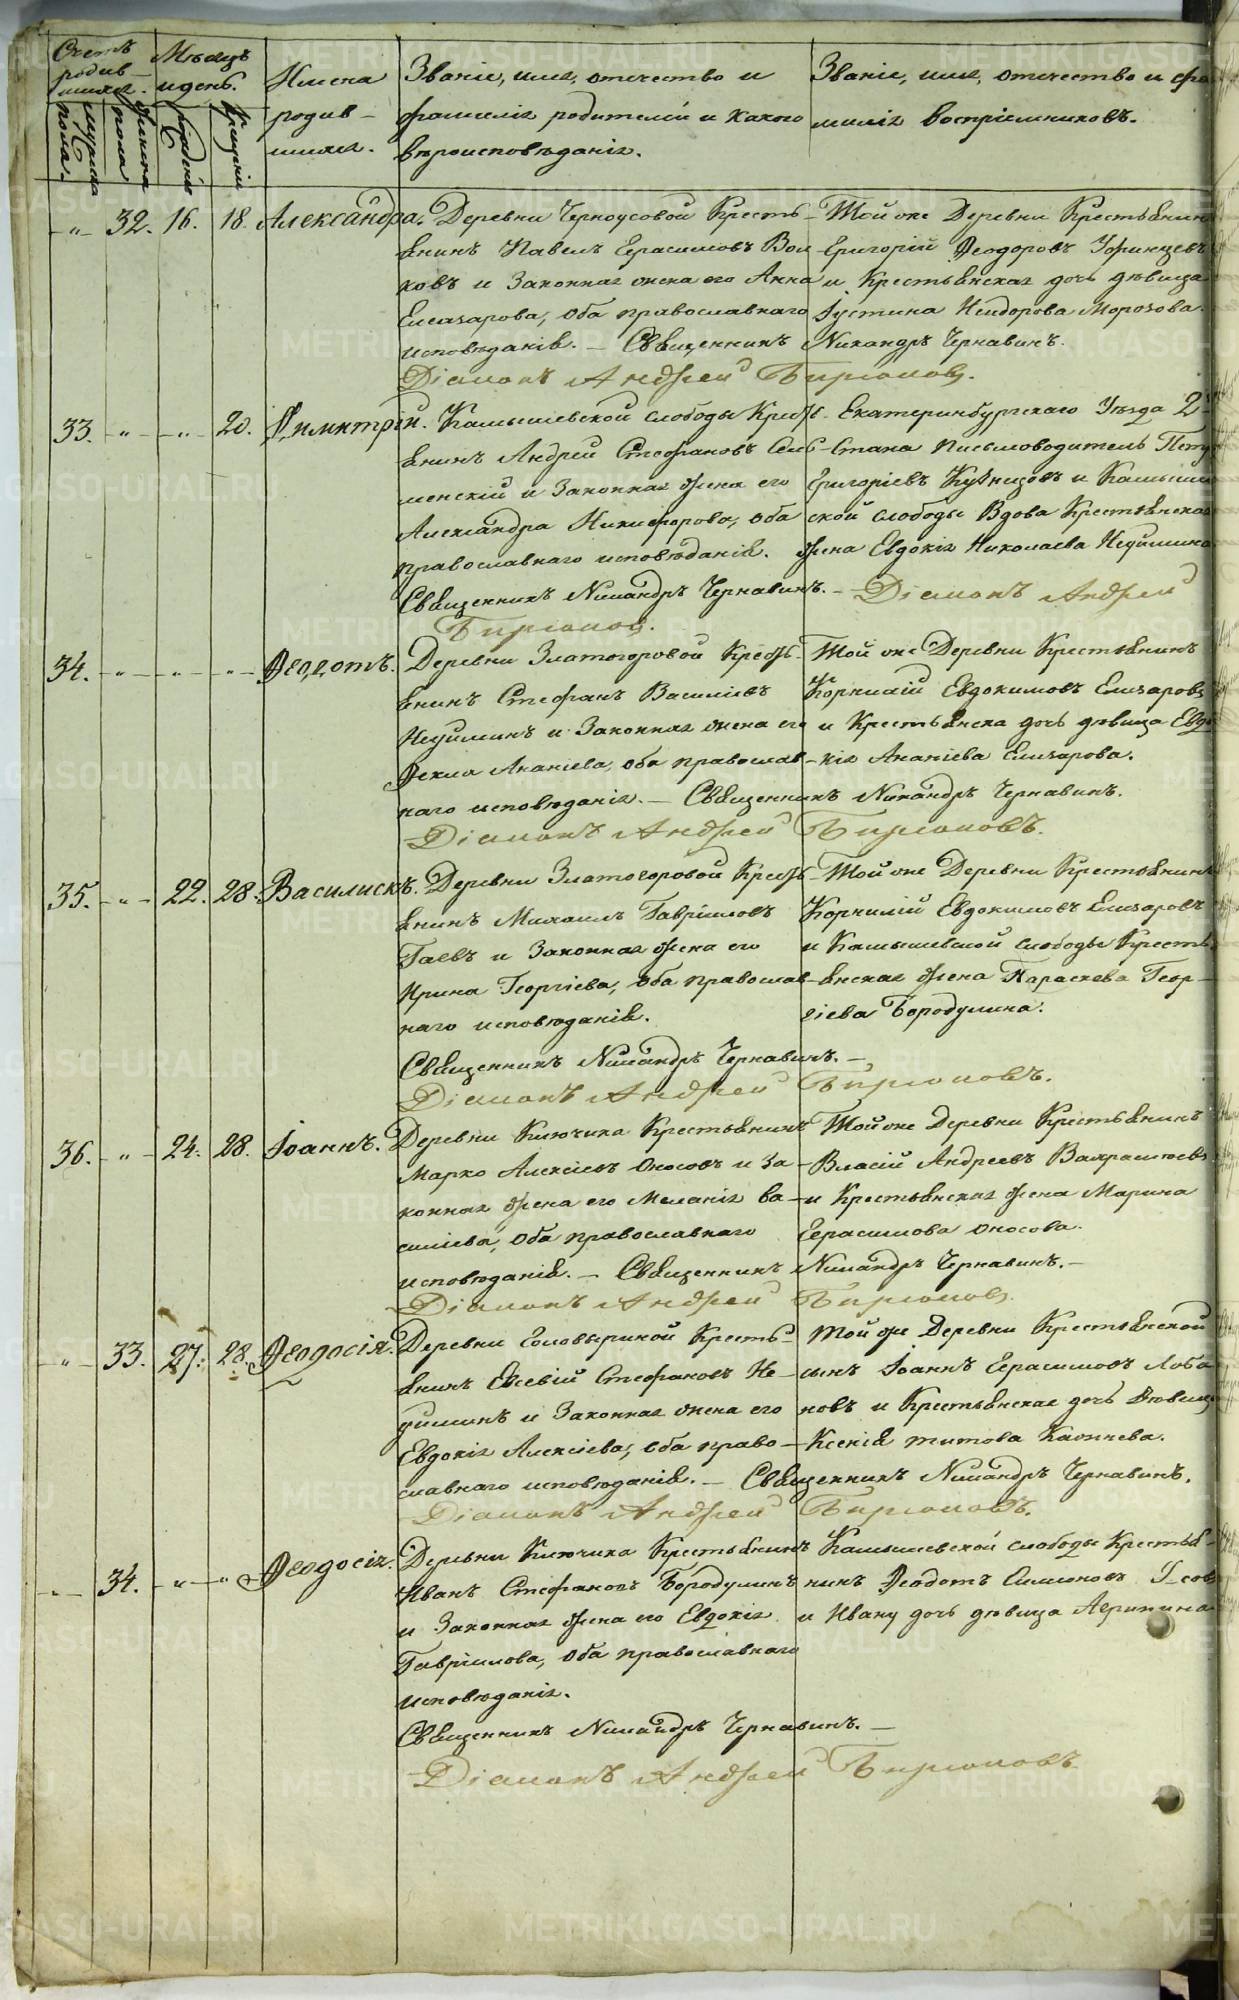 Счетъ родив-шихся.
Мѣсяцъ и день.
Имена родив-шихся.
Званіе, имя, отечество и фамилія родителей и какого вѣроисповѣданія.
Званіе, имя, отечество и фа-милія воспріемниковъ.
мужска пола.
женска пола
рожденія
крещенія
-„- 32. 16. 18. Александра.
Деревни Черноусовой Кресть-
янинъ Павелъ Герасимовъ Вол
ковъ и Законная жена его Анна
Елеазарова, оба православнаго
исповѣданія. – Священникъ Никандръ Чернавинъ.
Діаконъ Андрей Бирюковъ.
Той же Деревни Крестьянин
Григорій Ѳеодоровъ Уфинцевъ
и Крестьянская дочь дѣвица
Іустина Исидорова Морозова.
33. -„- -„- 20. Димитрій.
Камышевской слободы Кресть-
янинъ Андрей Стефановъ
менскій и Законная жена его
Александра Никифорова, оба
православнаго исповѣданія.
Священникъ Никандръ Чернавинъ. – Діаконъ Андрей
Бирюков.
Екатеринбургскаго Уѣзда 2-
Стана Письмоводитель
Григоріевъ Кузнецовъ и Камыше
ской слободы Вдова Крестьянская
жена Евдокія Николаева Неуймина
34. -„- -„- -„- Ѳеодотъ.
Деревни Златогоровой Кресть-
янинъ Стефанъ Василіевъ
Неуйминъ и Законная жена его
Ѳекла Ананіева, оба православ-
наго исповѣданія. – Священникъ Никандръ Чернавинъ.
Діаконъ Андрей Бирюковъ.
Той же Деревни Крестьянинъ
Корнилій Евдокимовъ Елизаровъ
и Крестьянска дочь дѣвица Евдо
кія Ананіева Елизарова.
35. -„- 22. 28. Василискъ.
Деревни Златогоровой Кресть-
янинъ Михаилъ Гавріиловъ
Гаевъ и Законная жена его
Ирина Георгіева, оба православ-
наго исповѣданія.
Священникъ Никандръ Чернавинъ. –
Діаконъ Андрей Бирюковъ.
Той же Деревни Крестьянинъ
Корнилій Евдокимовъ Елизаровъ
и Камышевской слободы Кресть
янская жена Параскева Геор-
гіева Бородулина.
36. -„- 24. 28. Іоаннъ.
Деревни Ключика Крестьянинъ
Марко Алексіевъ Оносовъ и За-
конная жена его Меланія Ва-
силіева, оба православнаго
исповѣданія. – Священникъ Никандръ Чернавинъ. –
Діаконъ Андрей Бирюковъ.
Той же Деревни Крестьянинъ
Власій Андреевъ Вахрамѣевъ
и Крестьянская жена Марина
Герасимова Оносова.
-„- 33. 27. 28. Ѳеодосія.
Деревни Головыриной Кресть-
янинъ Евсевій Стефановъ Не-
уйминъ и Законная жена его
Евдокія Алексіева, оба право-
славнаго исповѣданія. – Священникъ Никандръ Чернавинъ.
Діаконъ Андрей Бирюковъ.
Той же Деревни Крестьянской
сынъ Іоаннъ Герасимовъ Лоба
новъ и Крестьянская дочь Дѣвица
Ксенія Титова
-„- 34. -„- -„- Ѳеодосія.
Деревни Ключика Крестьянинъ
Иванъ Стефановъ Бородулинъ
и Законная жена его Евдокія
Гавріилова, оба православнаго
исповѣданія.
Священникъ Никандръ Чернавинъ. –
Діаконъ Андрей Бирюковъ
Камышевской слободы Крестья-
нинъ Ѳеодотъ Симеоновъ
и Ивану дочь дѣвица Агрипина
METRIKI.GASO-URAL.RU